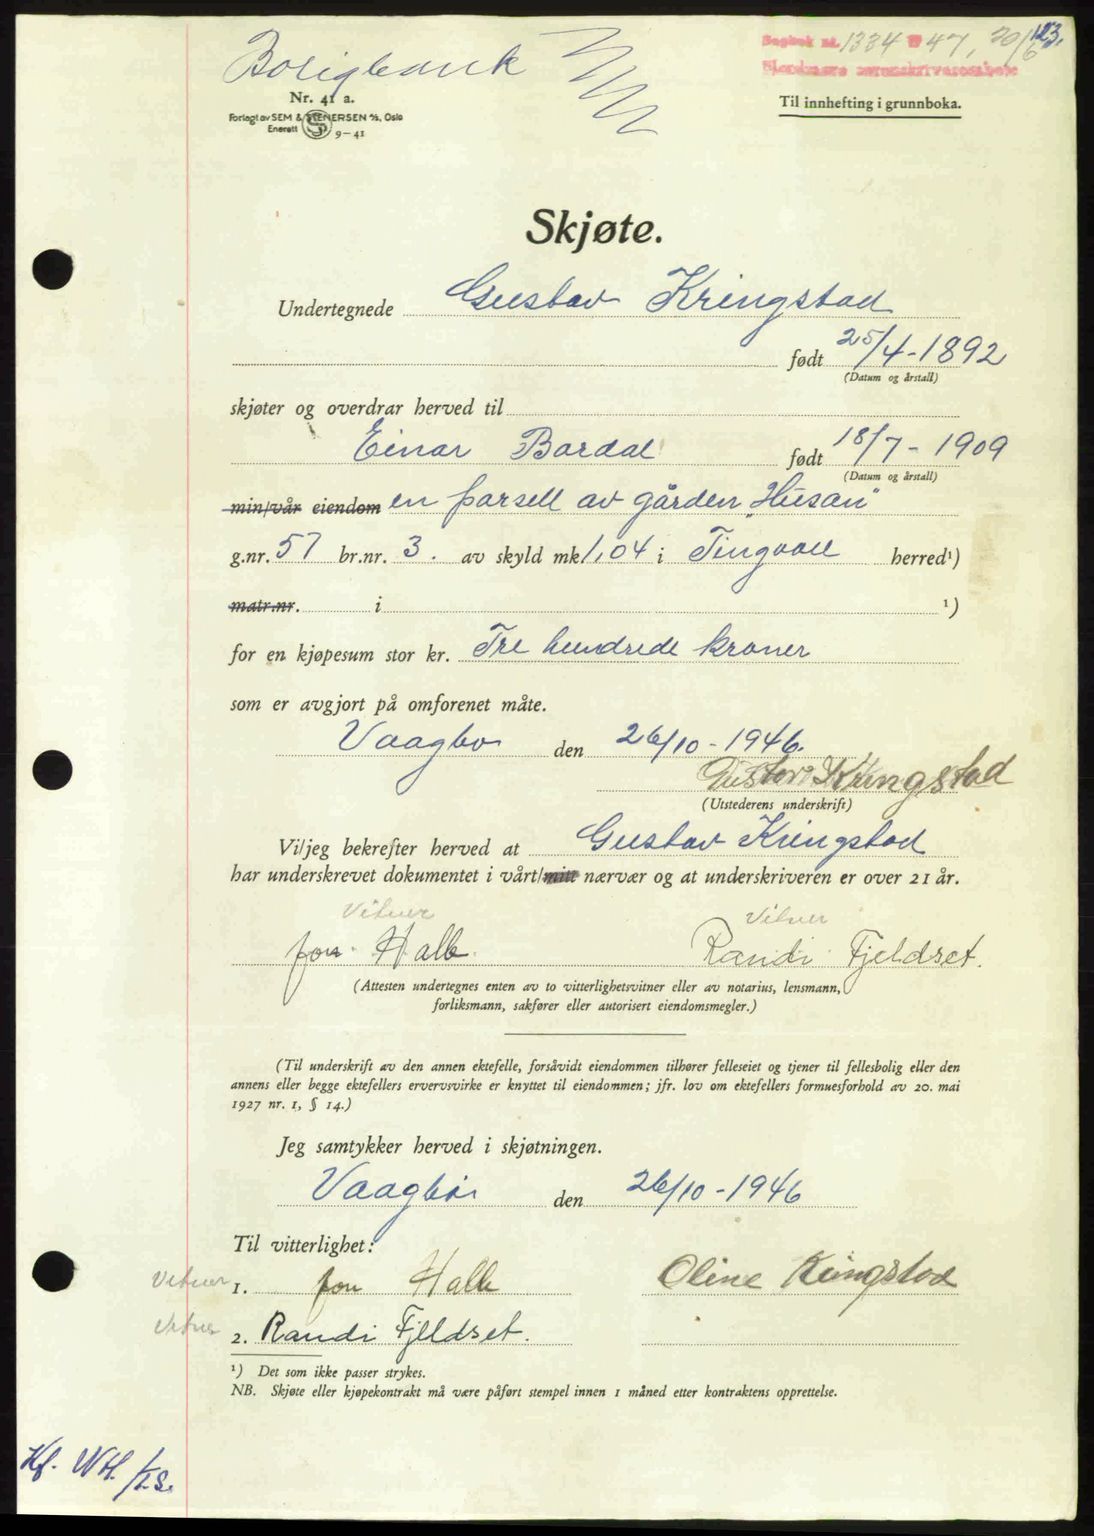 123.
Dagbok nr. 1334 19 47, 20/6
Nordmøre sorenskriverembete
Boligbank
Nr. 41 a.
Forlagt av SEM & STENERSEN A/S, Oslo
Enerett 9-41
Til innhefting i grunnboka.
Skjøte.
Undertegnede Gustav Kringstad
født 25/4-1892
(Datum og årstall)
skjøter og overdrar herved til
Einar Bardal født 18/7-1909
(Datum og årstall)
min/vår eiendom en parsell av gården "Husan"
g.nr. 57 br.nr. 3. av skyld mk 1,04 i Tingvoll herred¹)
matr.nr. i ¹)
for en kjøpesum stor kr. Tre hundrede kroner
som er avgjort på omforenet måte.
Vaagbø den 26/10-1946.
Gustav Kringstad
(Utstederens underskrift)
Vi/jeg bekrefter herved at Gustav Kringstad
har underskrevet dokumentet i vårt/mitt nærvær og at underskriveren er over 21 år.
Vitner Vitner
Jon Halle Randi Fjeldset.
(Attesten undertegnes enten av to vitterlighetsvitner eller av notarius, lensmann,
forliksmann, sakfører eller autorisert eiendomsmegler.)
(Til underskrift av den annen ektefelle, forsåvidt eiendommen tilhører felleseiet og tjener til fellesbolig eller den
annens eller begge ektefellers ervervsvirke er knyttet til eiendommen; jfr. lov om ektefellers formuesforhold av 20. mai
1927 nr. 1, § 14.)
Jeg samtykker herved i skjøtningen.
Vaagbø den 26/10-1946
Til vitterlighet:
Vitner 1. Jon Halle Oline Kringstad
Vitner 2. Randi Fjeldset.
¹) Det som ikke passer strykes.
NB. Skjøte eller kjøpekontrakt må være påført stempel innen 1 måned etter kontraktens opprettelse.
Kf. WH.